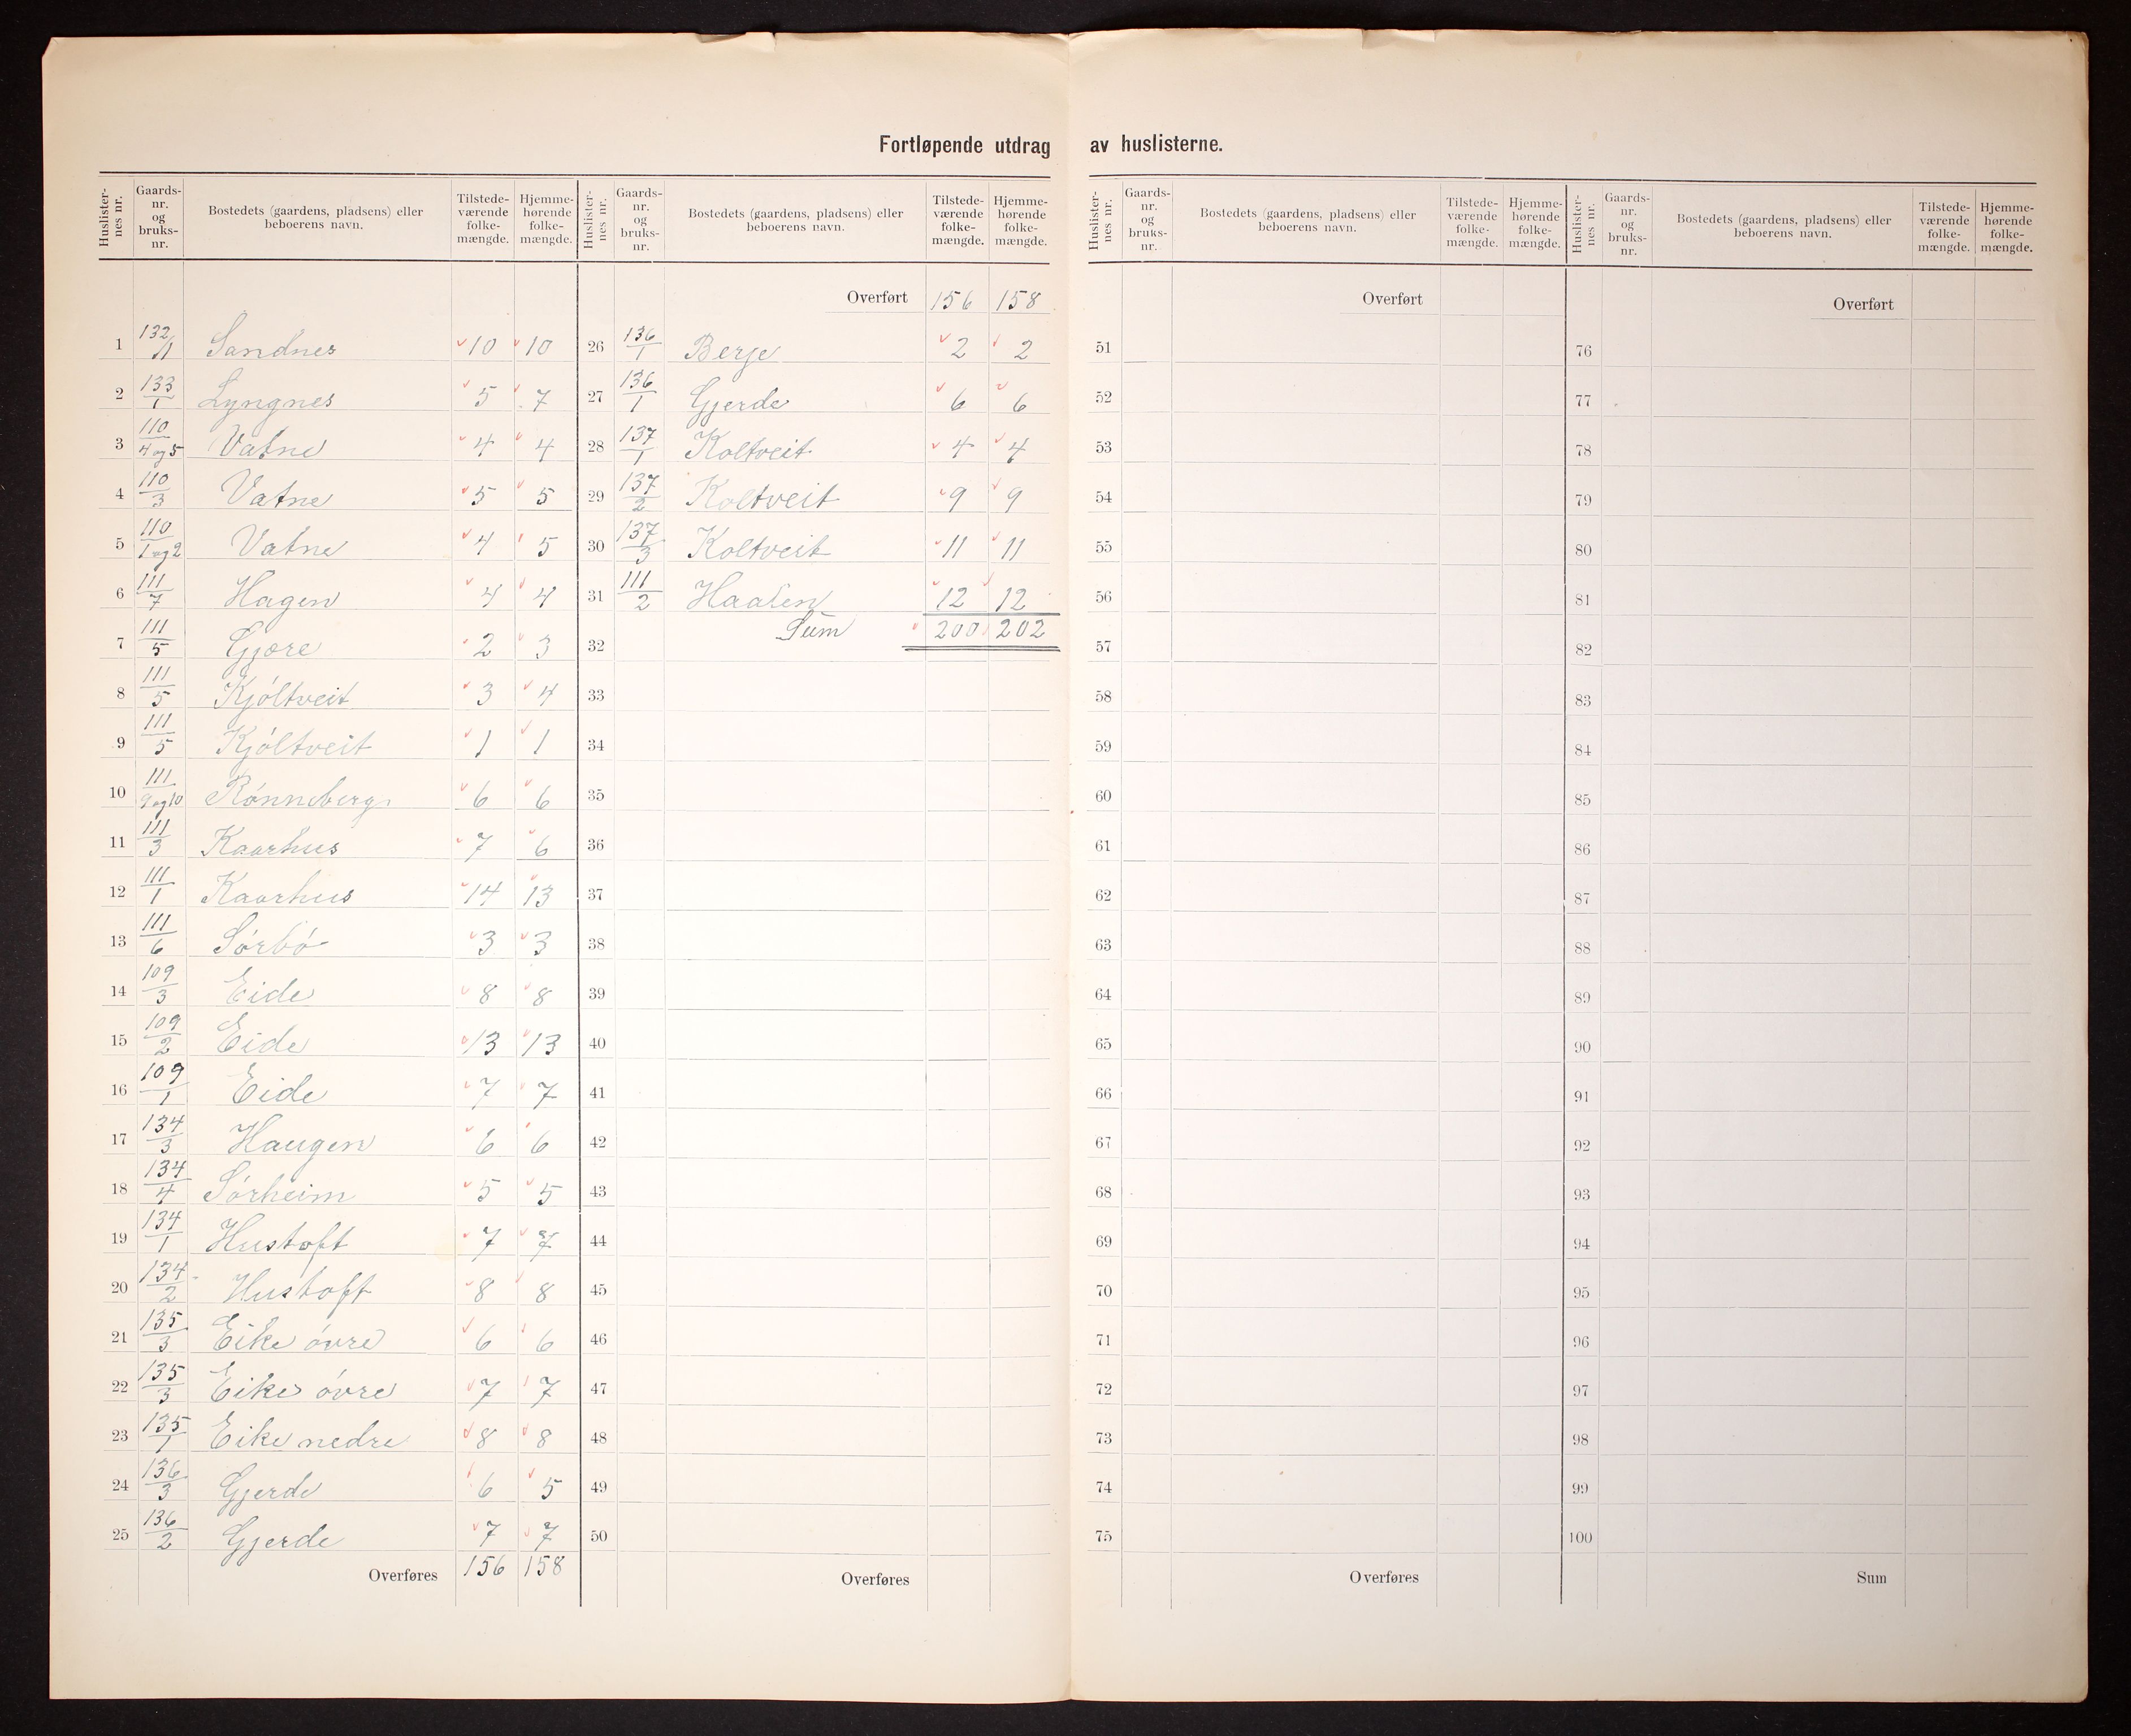 Fortløpende utdrag av huslisterne.
Huslister-nes nr. Gaards-nr. og bruks-nr. Bostedets (gaardens, pladsens) eller beboerens navn. Tilstede-værende folke-mængde. Hjemme-hørende folke-mængde.
1 132/1 Sandnes 10 10
2 133/1 Lyngnes 5 7
3 110/4 og 5 Vatne 4 4
4 110/3 Vatne 5 5
5 110/1 og 2 Vatne 4 5
6 111/7 Hagen 4 4
7 111/5 Gjøre 2 3
8 111/5 Kjóltveit 3 4
9 111/5 Kjóltveit 1 1
10 111/9 og 10 Rónneberg 6 6
11 111/3 Kaarhus 7 6
12 111/1 Kaarhus 14 13
13 111/6 Sórbó 3 3
14 109/3 Eide 8 8
15 109/2 Eide 13 13
16 109/1 Eide 7 7
17 134/3 Haugen 6 6
18 134/4 Sórheim 5 5
19 134/1 Hustoft 7 7
20 134/2 Hustoft 8 8
21 135/3 Eike óvre 6 6
22 135/3 Eike óvre 7 7
23 135/1 Eike nedre 8 8
24 136/3 Gjerde 6 5
25 136/2 Gjerde 7 7
Overføres 156 158
Huslister-nes nr. Gaards-nr. og bruks-nr. Bostedets (gaardens, pladsens) eller beboerens navn. Tilstede-værende folke-mængde. Hjemme-hørende folke-mængde.
Overført 156 158
26 136/1 Berje 2 2
27 136/1 Gjerde 6 6
28 137/1 Koltveit 4 4
29 137/2 Koltveit 9 9
30 137/3 Koltveit 11 11
31 111/2 Haalen 12 12
32 Sum 200 202
33
34
35
36
37
38
39
40
41
42
43
44
45
46
47
48
49
50
Overføres
Huslister-nes nr. Gaards-nr. og bruks-nr. Bostedets (gaardens, pladsens) eller beboerens navn. Tilstede-værende folke-mængde. Hjemme-hørende folke-mængde.
Overført
51
52
53
54
55
56
57
58
59
60
61
62
63
64
65
66
67
68
69
70
71
72
73
74
75
Overføres
Huslister-nes nr. Gaards-nr. og bruks-nr. Bostedets (gaardens, pladsens) eller beboerens navn. Tilstede-værende folke-mængde. Hjemme-hørende folke-mængde.
Overført
76
77
78
79
80
81
82
83
84
85
86
87
88
89
90
91
92
93
94
95
96
97
98
99
100
Sum